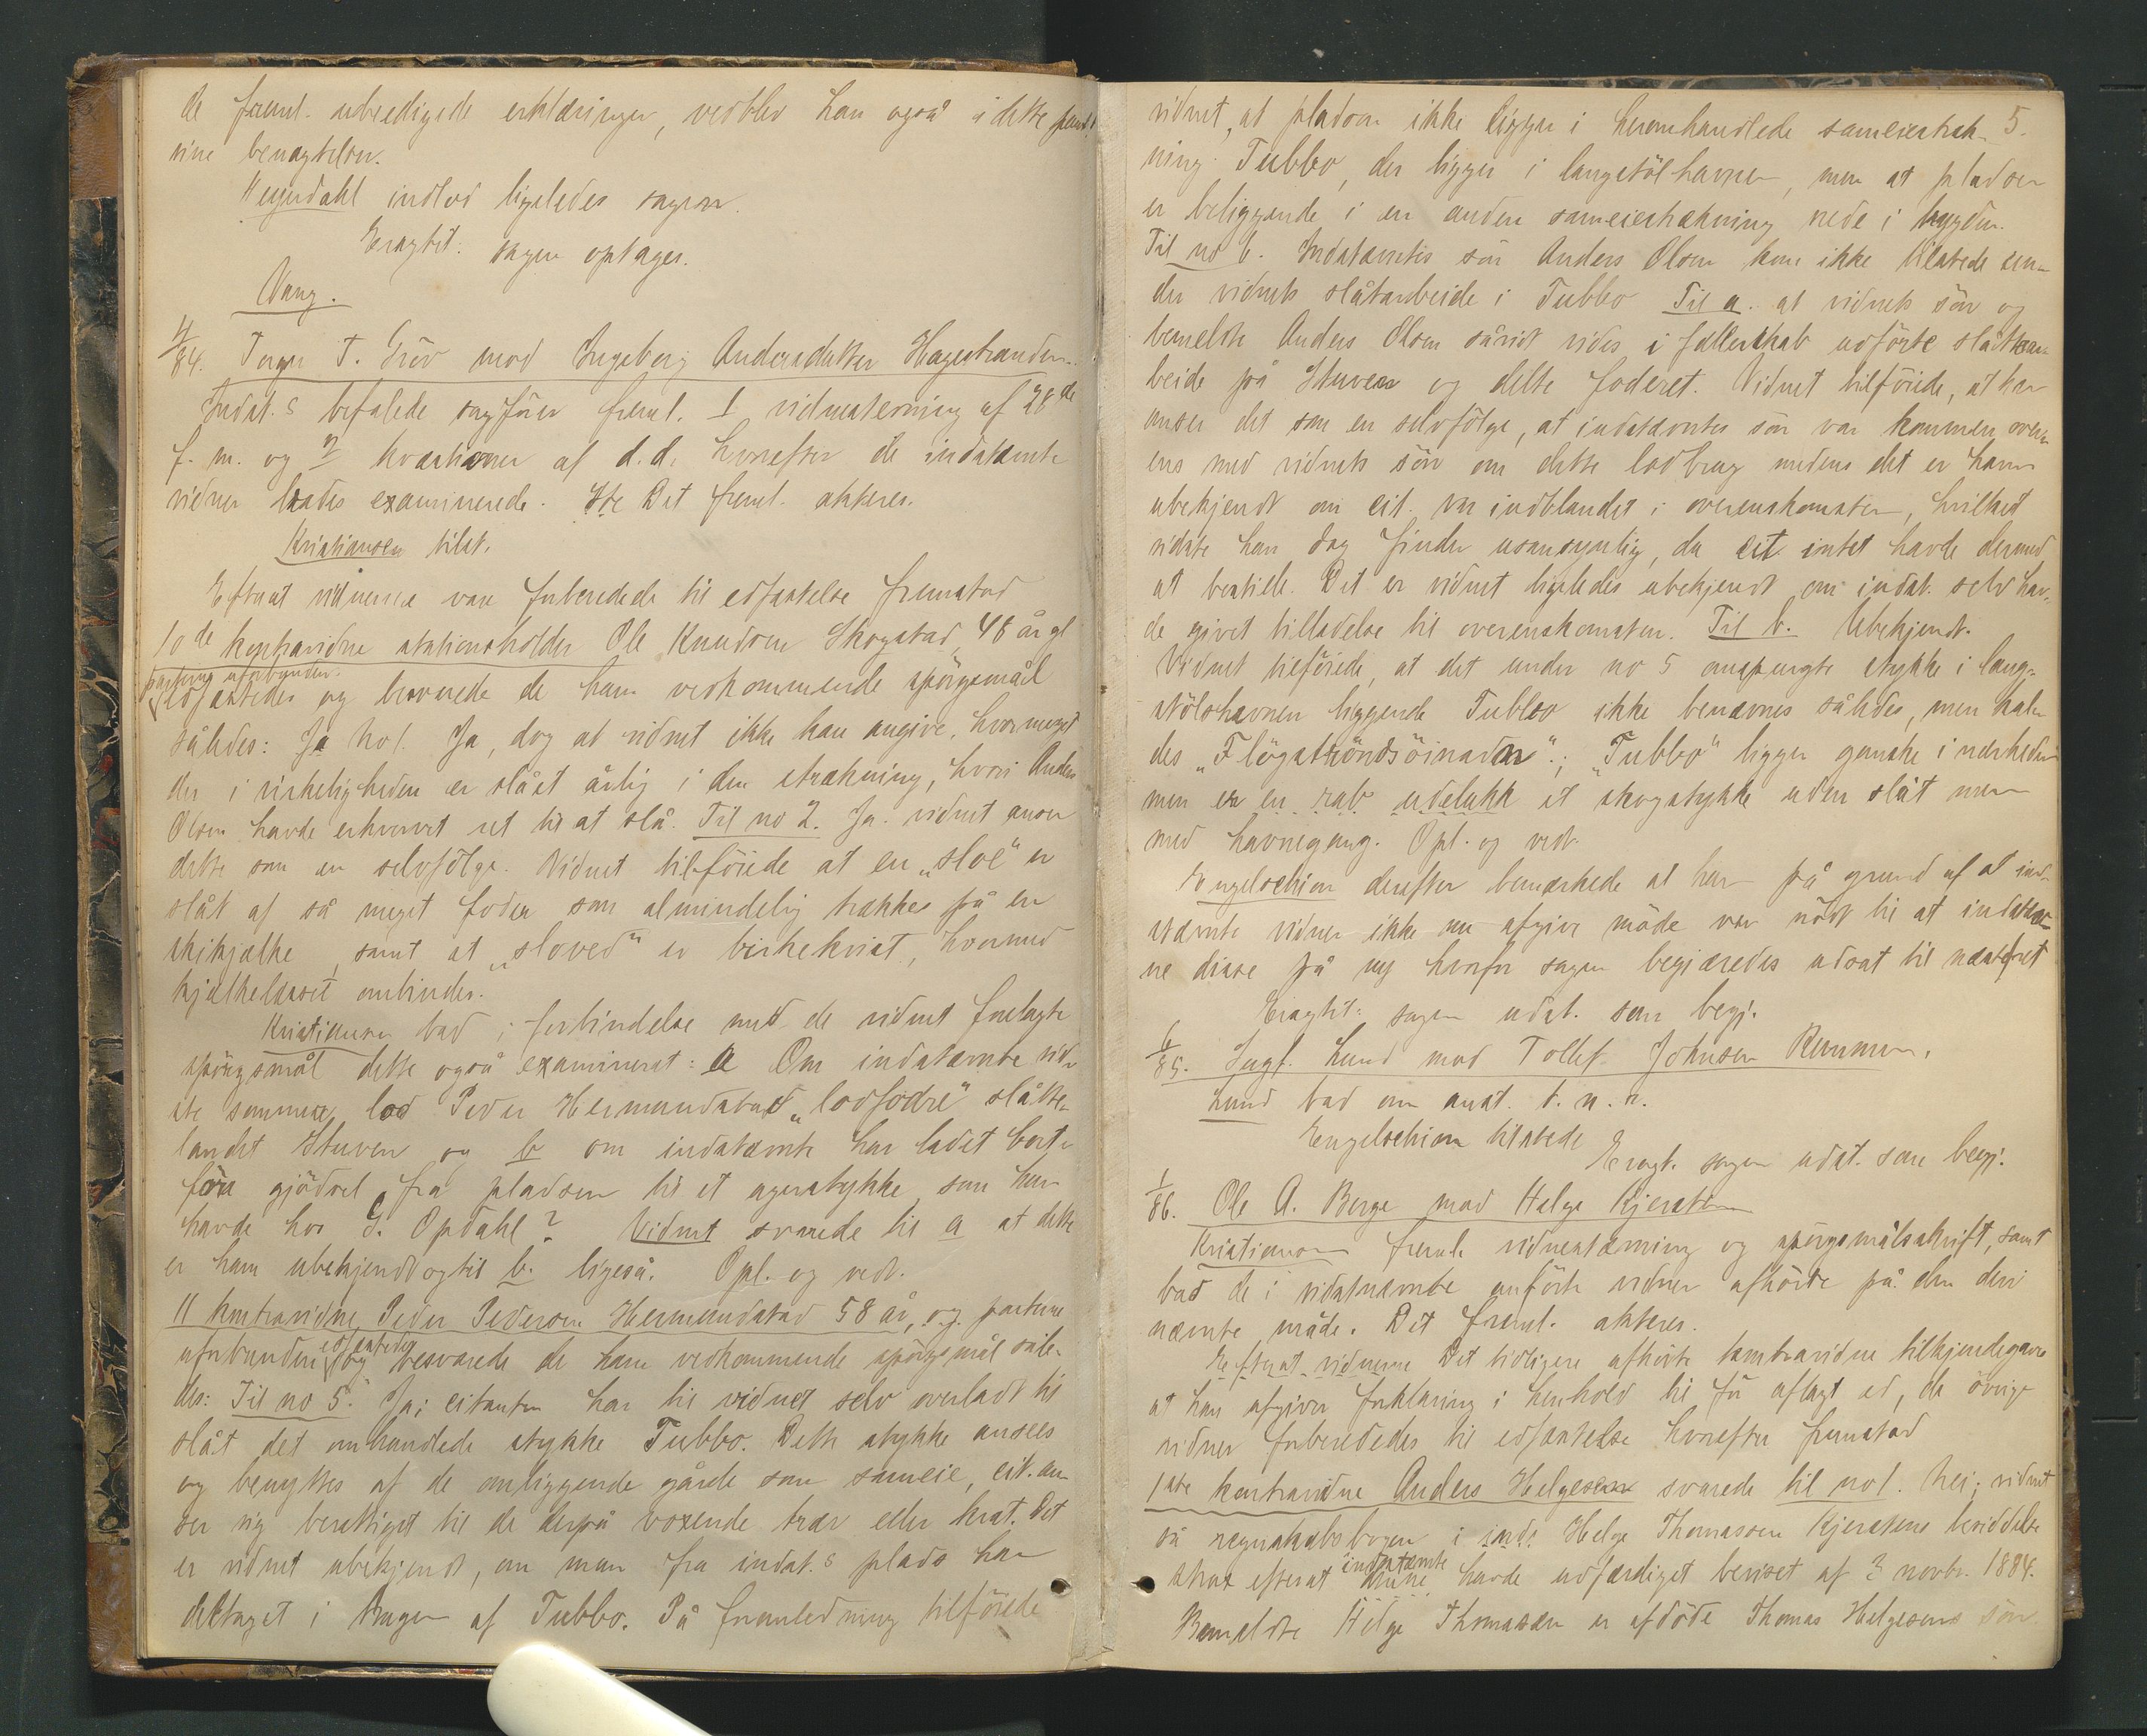 de freml. ubeedigede erklæringer, vedblev han også i dette
sine benægtelser.
Heyerdahl indlod ligeledes sagen.
Eragtet: sagen optages.
Vang.
4/84. Torger T. Gröv mod Ingeborg Andersdatter Hagestranden.
Indst.s befalede sagfører freml. 1 vidnestevning af 28de
f. m. og 2 kvæstioner af d.d. hvorefter de indstævnte
vidner bades examinerede. Det freml. akteres.
Kristiansen tilst.
Efterat vidnerne vare forberedede til edfæstelse fremstod
10de kontravidne stationsholder Ole Knudsen Skogstad, 48 år gl
parterne uforbunden.
edfæstedes og besvarede de ham vedkommende spörgsmål
således: Ja No 1. Ja, dog at vidnet ikke kan angive, hvormeget
der i virkeligheden er slået årlig i den strækning, hvori Anders
Olsen havde erhvervet ret til at slå. Til no 2. Ja. vidnet anser
dette som en selvfölge. Vidnet tilföiede at en "sloe" er
slåt af så meget foder som almindelig trækkes på en
skikjælke, samt at "sloved" er birkekvist, hvormed
kjælkelæsset ombindes.
Kristiansen bad i forbindelse med de vidnet forelagte
spörgsmål dette også examineret: a Om indstævnte sid-
ste sommer lod Peder Hermundstad "lodfodre" slåtte-
landet Stuven og b om indstævnte har ladet bort-
före gjödsel fra pladsen til et agerstykke som hun
havde hos G. Opdahl? Vidnet svarede til a at dette
er ham ubekjendt og til b. ligeså. Opl. og vedt.
11 kontravidne Peder Pedersen Hermundstad 58 år, og parterne
uforbunden edfæstedes og besvarede de ham vedkommende spörgsmål såle-
des: Til no 5. Ja; citanten har til vidnet selv overladt til
slåt det omhandlede stykke Tubbo. Dette stykke ansees
og benyttes af de omliggende gårde som sameie, cit. an-
ser sig berettiget til de derpå voxende trær eller krat. Det
er vidnet ubekjendt, om man fra indst.s plads har
deltaget i brugen af Tubbo. På foranledning tilföiede
5.
vidnet, at pladsen ikke ligger i heromhandlede sameiestræk-
ning Tubbo, der ligger i langstölhavnen, men at pladsen
er beliggende i en anden sameiestrækning nede i bygden.
Til no 6. Indstævntes sön Anders Olsen kom ikke tilstede un-
der vidnets slåtarbeide i Tubbo Til a. at vidnets sön og
bemeldte Anders Olsen såvidt vides i fællesskab udförte slåttear-
beide på Stuven og delte foderet. Vidnet tilföiede, at han
anser det som en selvfölge, at indstævntes sön var kommen over-
ens med vidnets sön om dette lodbrug medens det er ham
ubekjendt om cit. var indblandet i overenskomsten, hvilket
sidste han dog finder usansynlig, da cit intet havde dermed
at bestille. Det er vidnet ligeledes ubekjendt om indst. selv hav-
de givet tilladelse til overenskomsten. Til b. Ubekjendt.
Vidnet tilföiede, at det under no 5 omspurgte stykke i lang-
stölshavnen liggende Tubbo ikke benævnes således, men kal-
des "Flögströndsöinadn".; "Tubbo" ligger ganske i nærheden
men er en rab udelukk et skogstykke uden slåt men
med havnegang. Opl. og vedt.
Engelschion derefter bemærkede at han på grund af at ind-
stævnte vidner ikke nu afgive möde var nödt til at indstæv-
ne disse på ny hvorfor sagen begjæredes udsat til næste ret
Eragtet: sagen udst. som begj.
6/85. Sagf. Lund mod Tollef Johnsen
Lund bad om anst. t. n. r.
Engelschion tilstede
Eragt. sagen udst. som begj.
1/86. Ole A. Berge mod Helge Kjerstein
Kristiansen freml. vidnestævning og spörgsmålsskrift, samt
bad de i vidstævnte anförte vidner afhörte på den deri
nævnte måde. Det freml. akteres.
Efterat vidnerne Det tidligere afhörte kontravidne tilkjendegav
at han afgiver forklaring i henhold til för aflagt ed, de övrige
vidner forberededes til edfæstelse hvorefter fremstod
1ste kontravidne Anders Helgesen svarede til no 1. Nei; vidnet
så regnskabsbogen i inds. Helge Thomassen Kjersteins besiddelse
strax efterat denne indstævnte havde udfærdiget beviset af 3 novbr. 1884.
Bemeldte Helge Thomassen er afdöde Thomas Helgesens sön